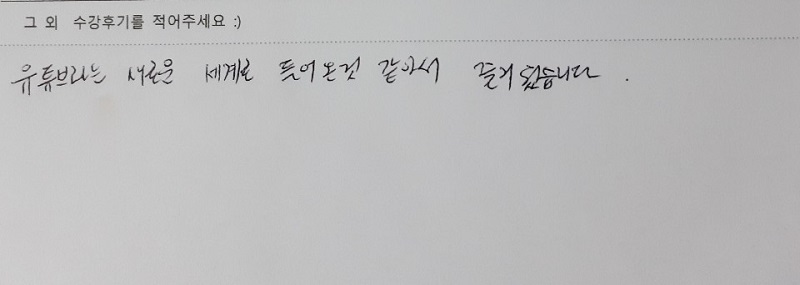 그 외 수강후기를 적어주세요 :)
유튜브라는 새로운 세계로 들어온것 같아서 즐거웠습니다.